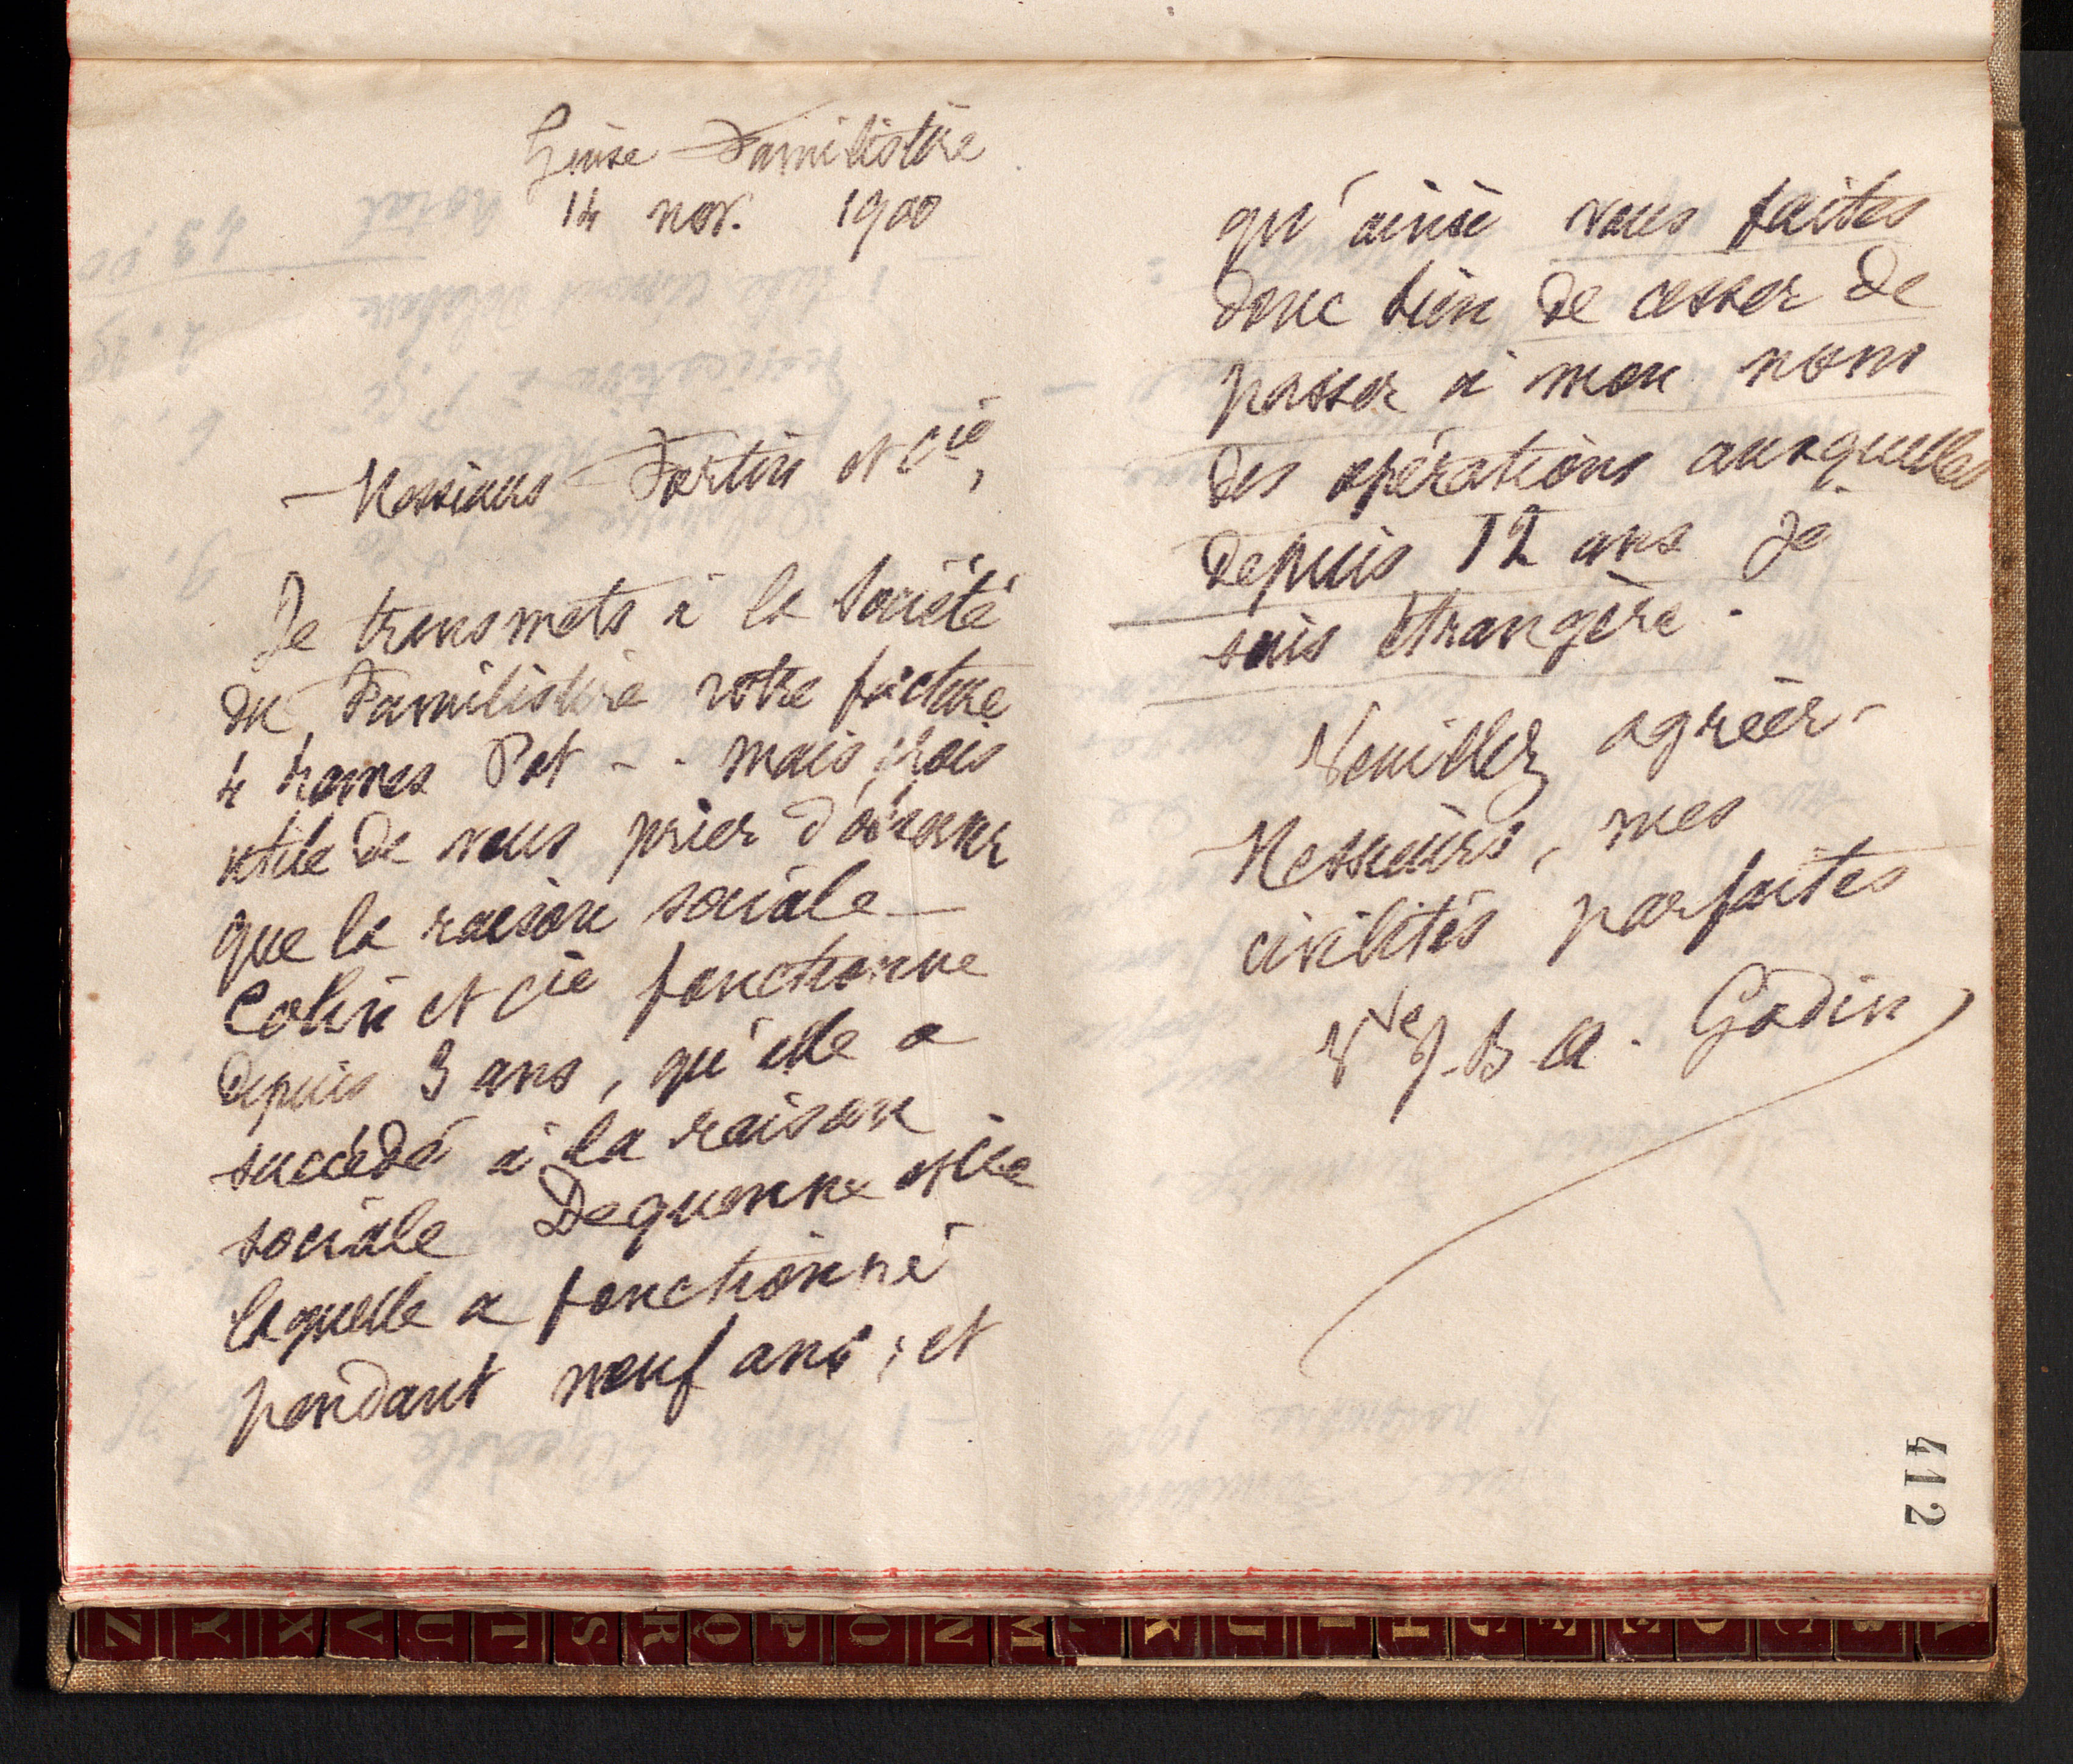 Guise Familistère
14 nov. 1900
Messieurs Fortin et Cie,
Je transmets à la Société
du Familistère votre facture
4 Pat - - mais crois
utile de vous prier d'observer
que la raison sociale
Colin et Cie fonctionne
depuis 3 ans, qu'elle a
succédé à la raison
sociale Dequenne et Cie
laquelle a fonctionné
pendant neuf ans ; et
qu'ainsi vous faites
donc bien de cesser de
passer à mon nom
des opérations auxquelles
depuis 12 ans je
suis étrangère.
Veuillez agréer
Messieurs, mes
civilités parfaites
Vve J-B-A. Godin
412
Z Y X V U T S R Q P O N M L K J I H G F E D C B A